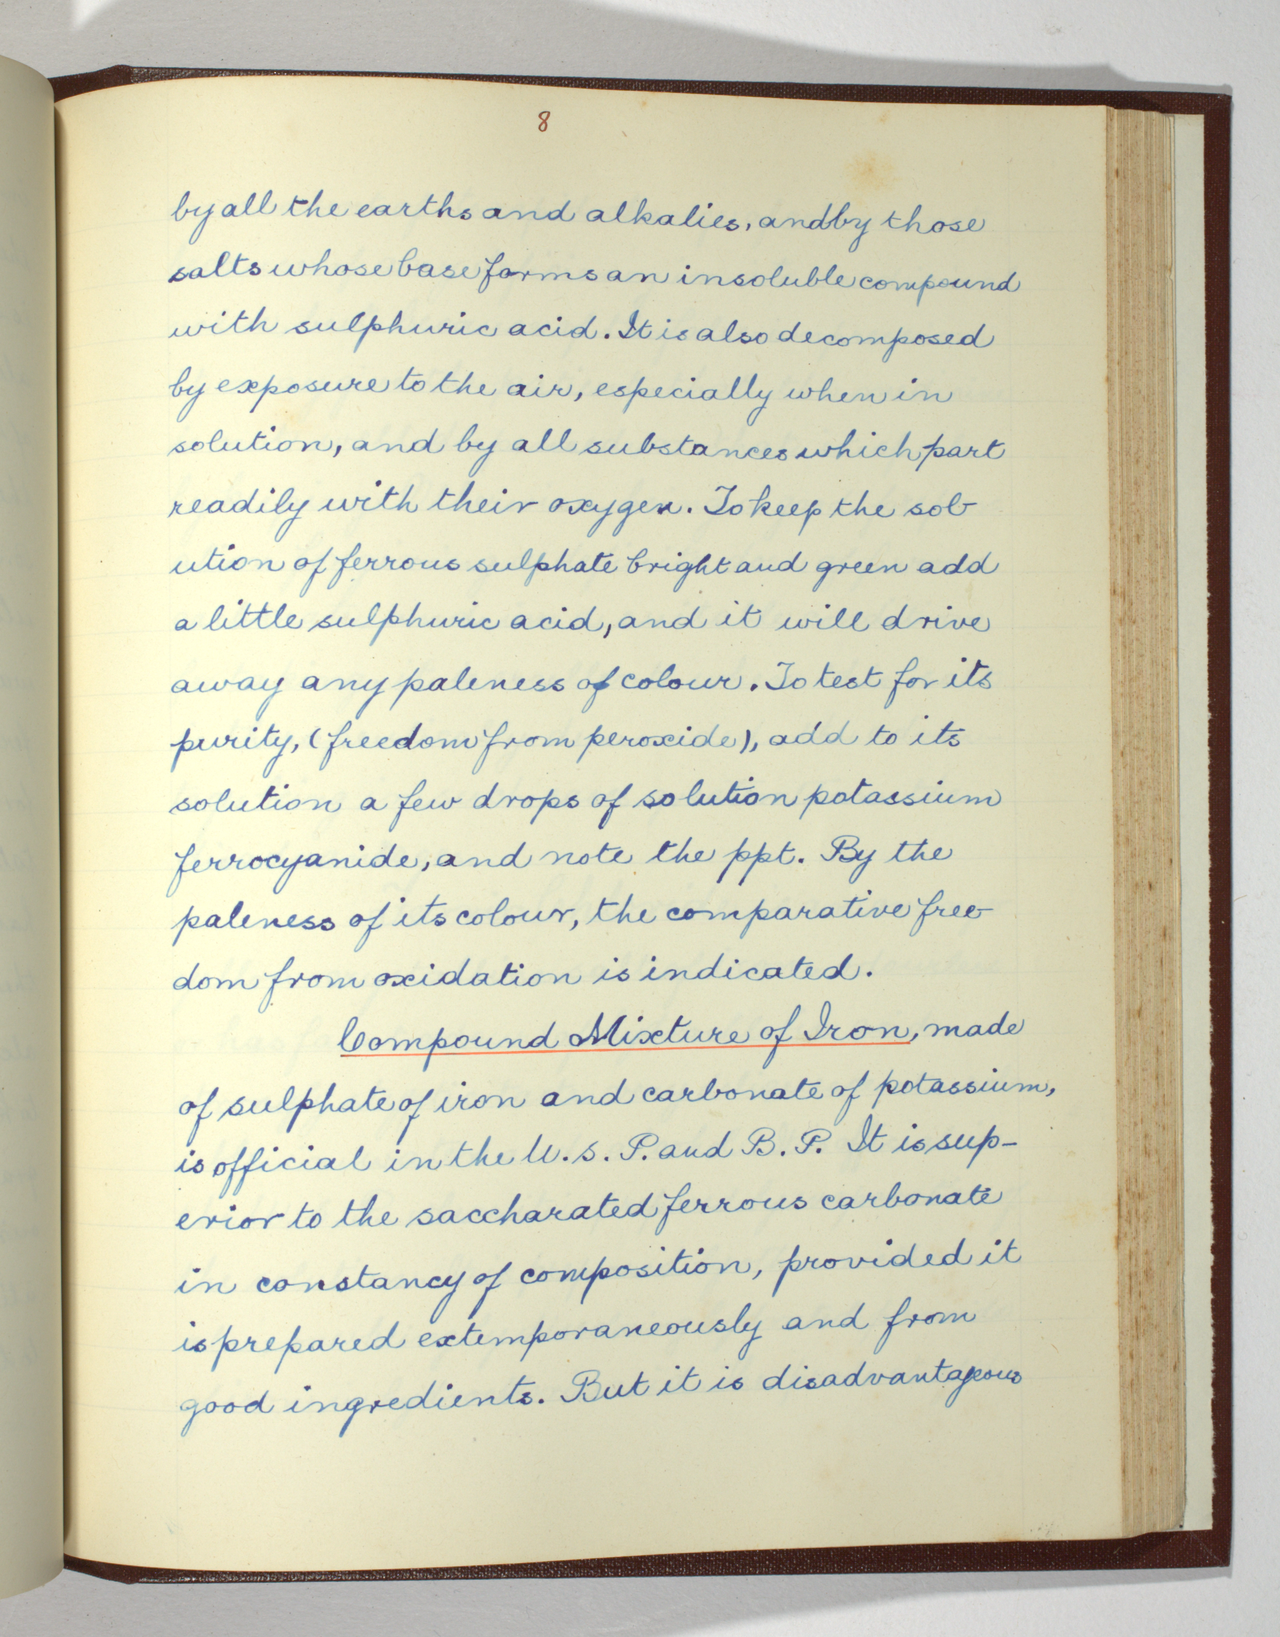 8
by all the earths and alkalies, and by those
salts whose base forms an insoluble compound
with sulphuric acid. It is also decomposed
by exposure to the air, especially when in
solution, and by all substances which part
readily with their oxygen. To keep the sol-
ution of ferrous sulphate bright and green add
a little sulphuric acid, and it will drive
away any paleness of colour. To test for its
purity, (freedom from peroxide), add to its
solution a few drops of solution potassium
ferrocyanide, and note the ppt. By the
paleness of its colour, the comparative free-
dom from oxidation is indicated.
Compound Mixture of Iron, made
of sulphate of iron and carbonate of potassium,
is official in the U.S.P. and B.P. It is sup-
erior to the saccharated ferrous carbonate
in constancy of composition, provided it
is prepared extemporaneously and from
good ingredients. But it is disadvantageous